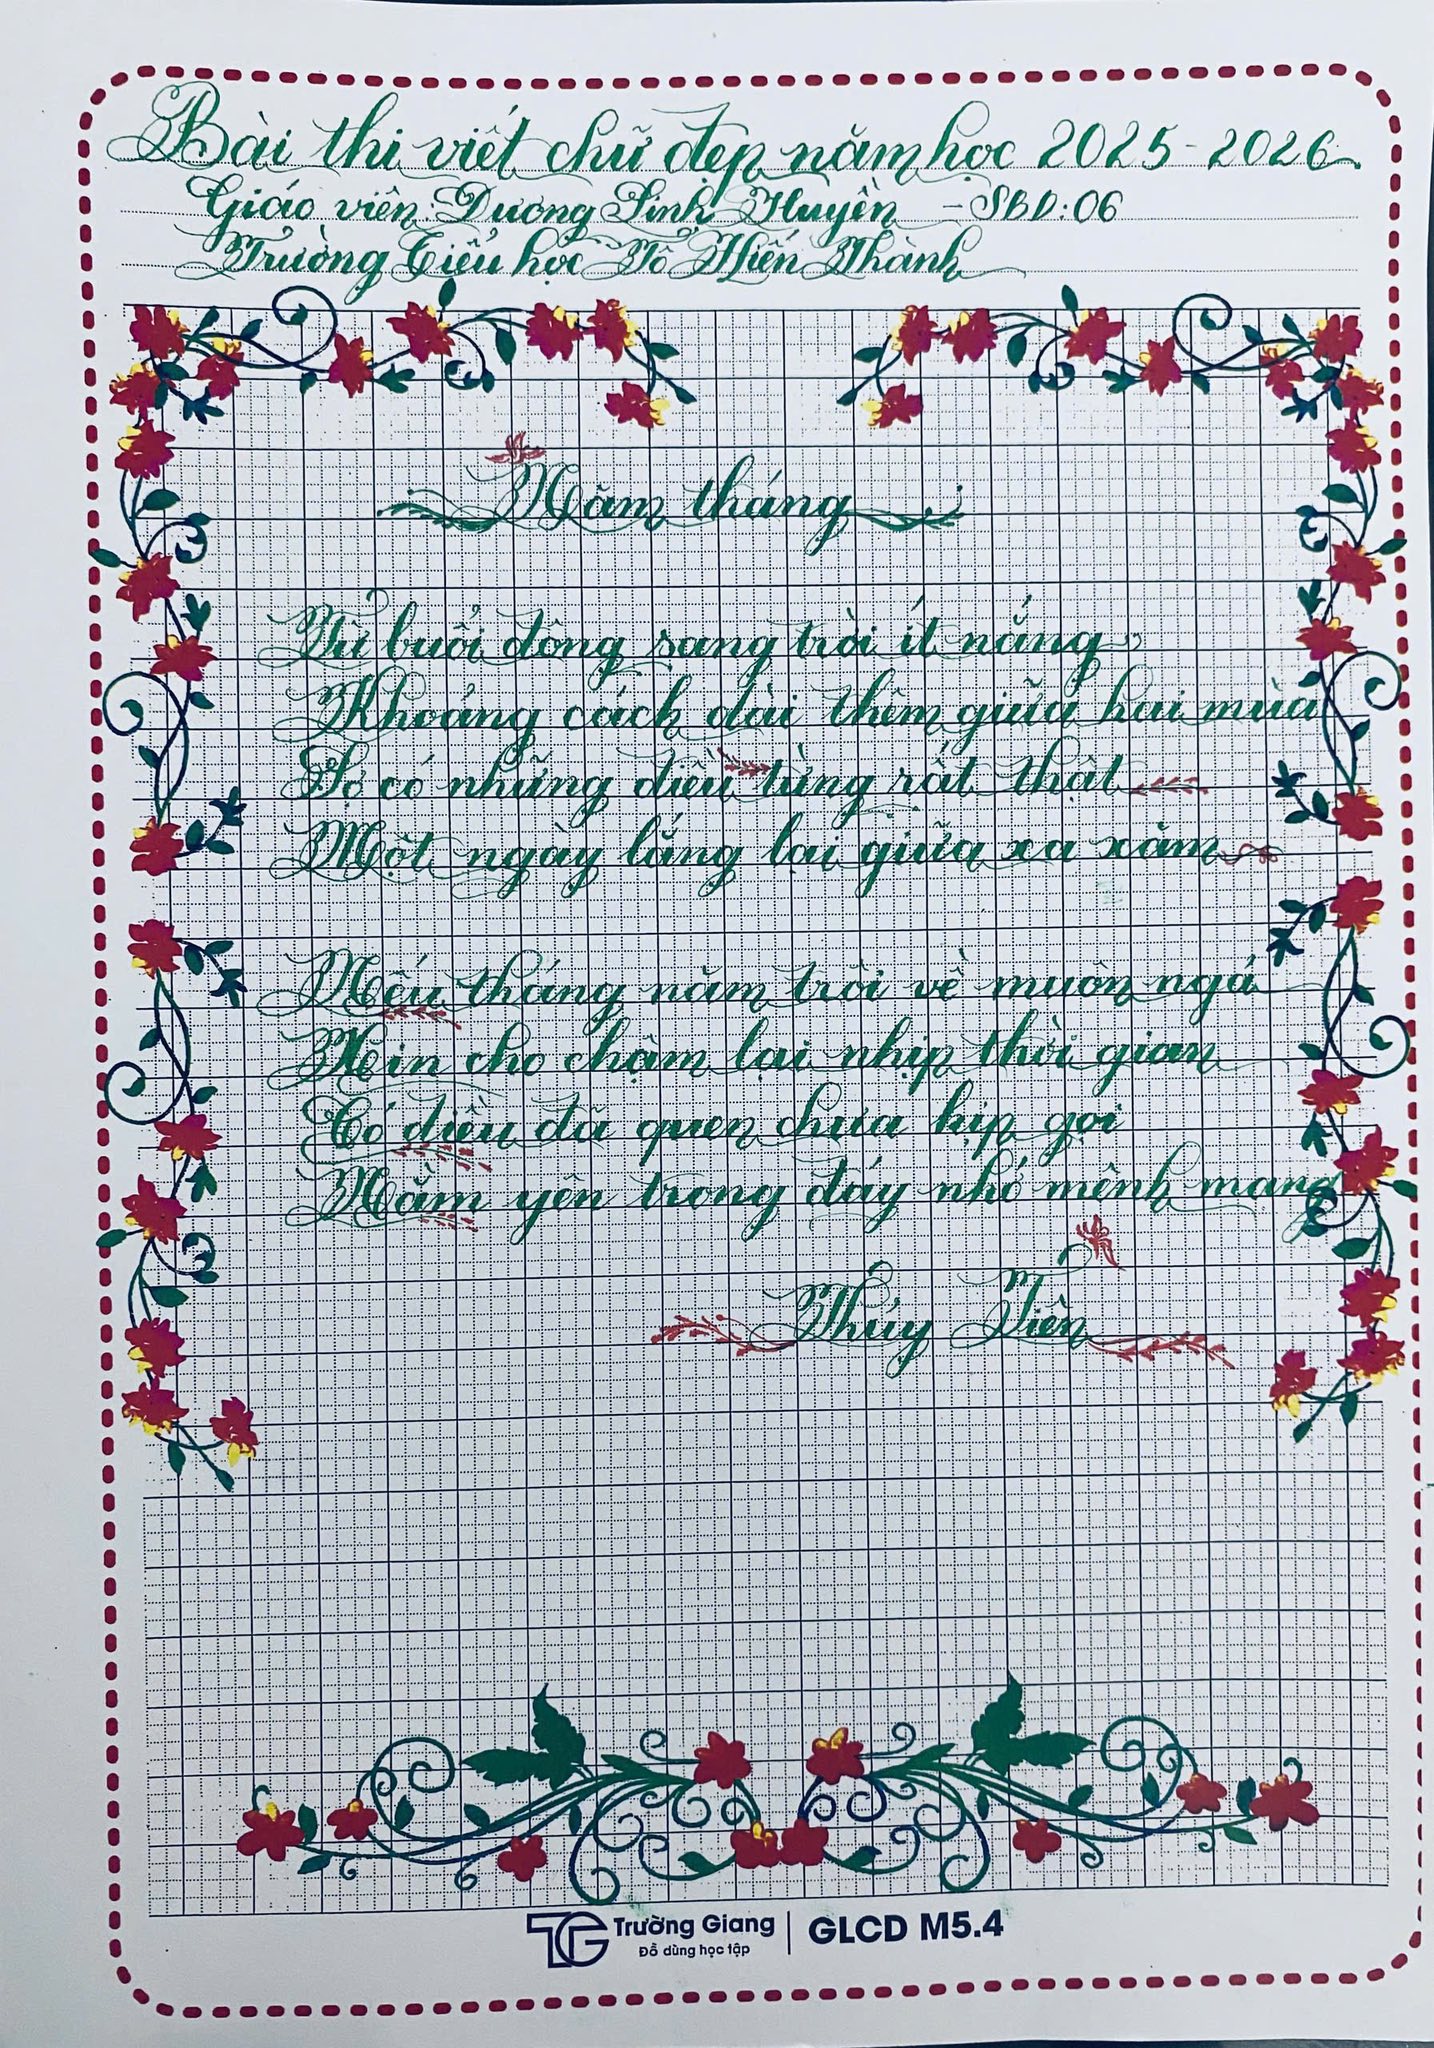 Bài thi viết chữ đẹp năm học 2025-2026
Giáo viên: Dương Sinh Huyền - SBD: 06
Trường Tiểu học Tô Hiến Thành
Năm tháng
Từ buổi đông sang trời ít nắng
Khoảng cách dài thêm giữa hai mùa
Sợ có những điều từng rất thật
Một ngày lắng lại giữa xa xăm
Nếu tháng năm trôi về muôn ngả
Xin cho chậm lại nhịp thời gian
Có điều đã quen chưa kịp gọi
Nằm yên trong đáy nhớ mênh mang
Thủy Tiên
TG Trường Giang | GLCD M5.4
Đồ dùng học tập